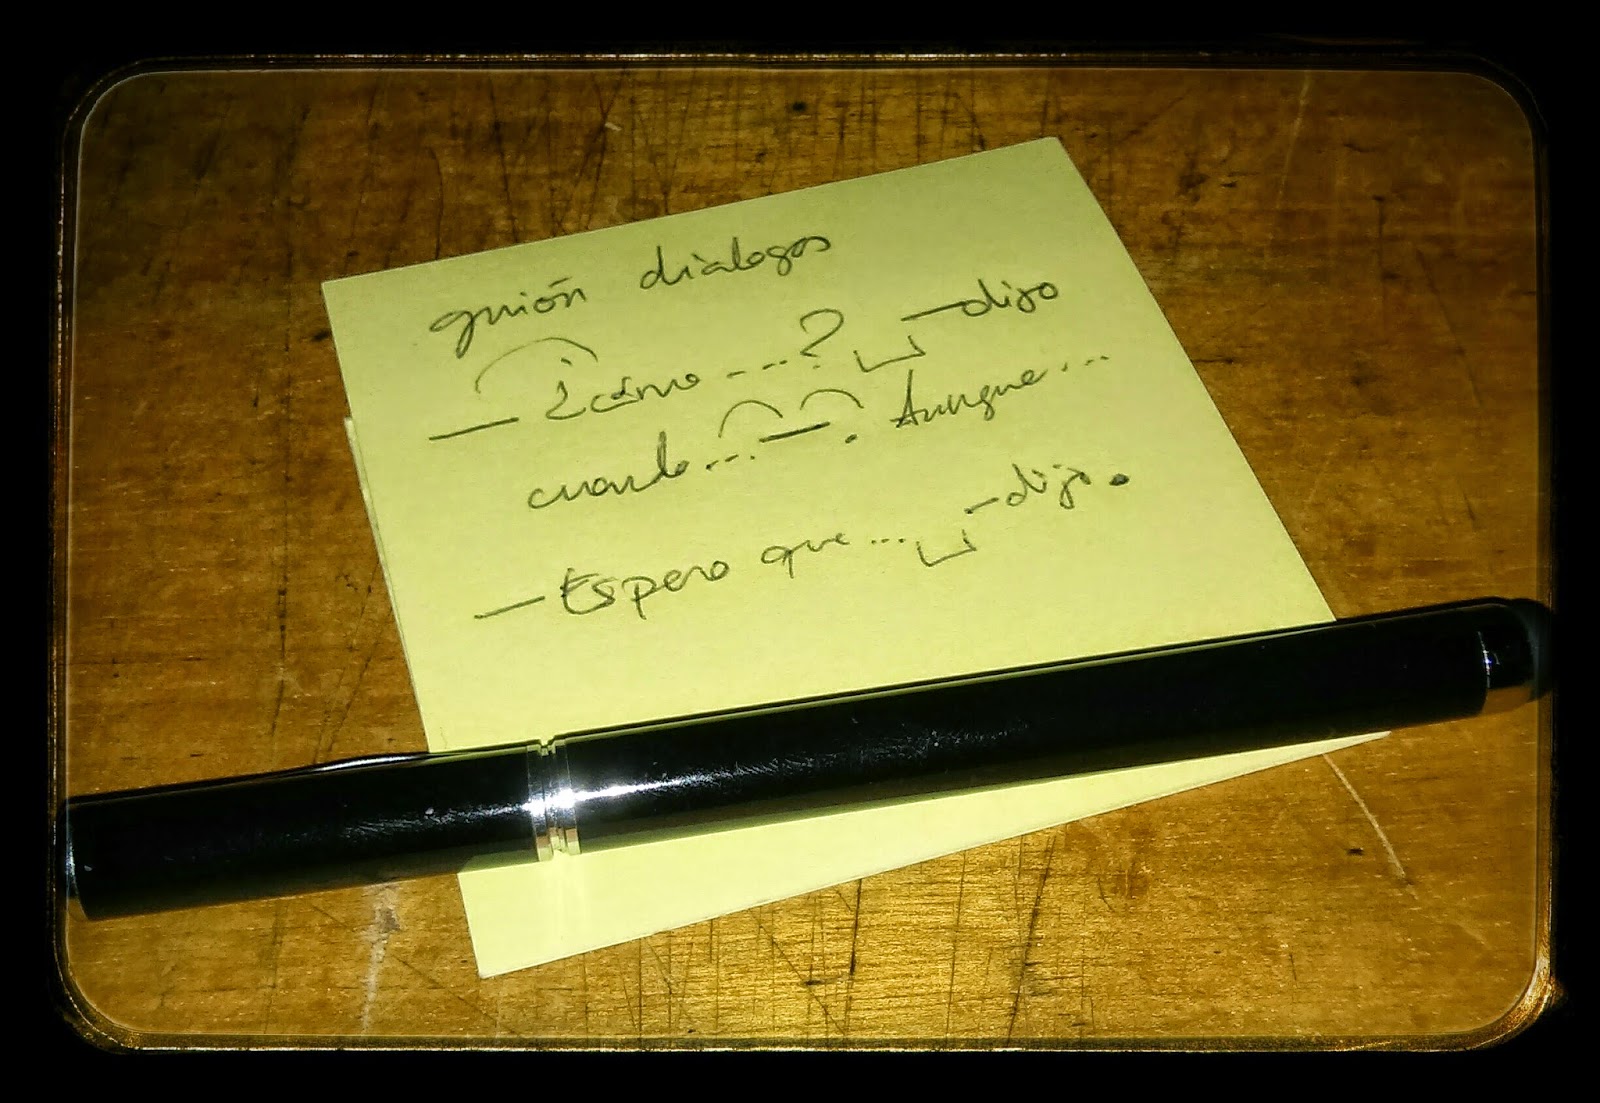 guión dialogos
— ¿cómo ....? —dijo
cuando...—. Aunque...
— Espero que... —dijo.